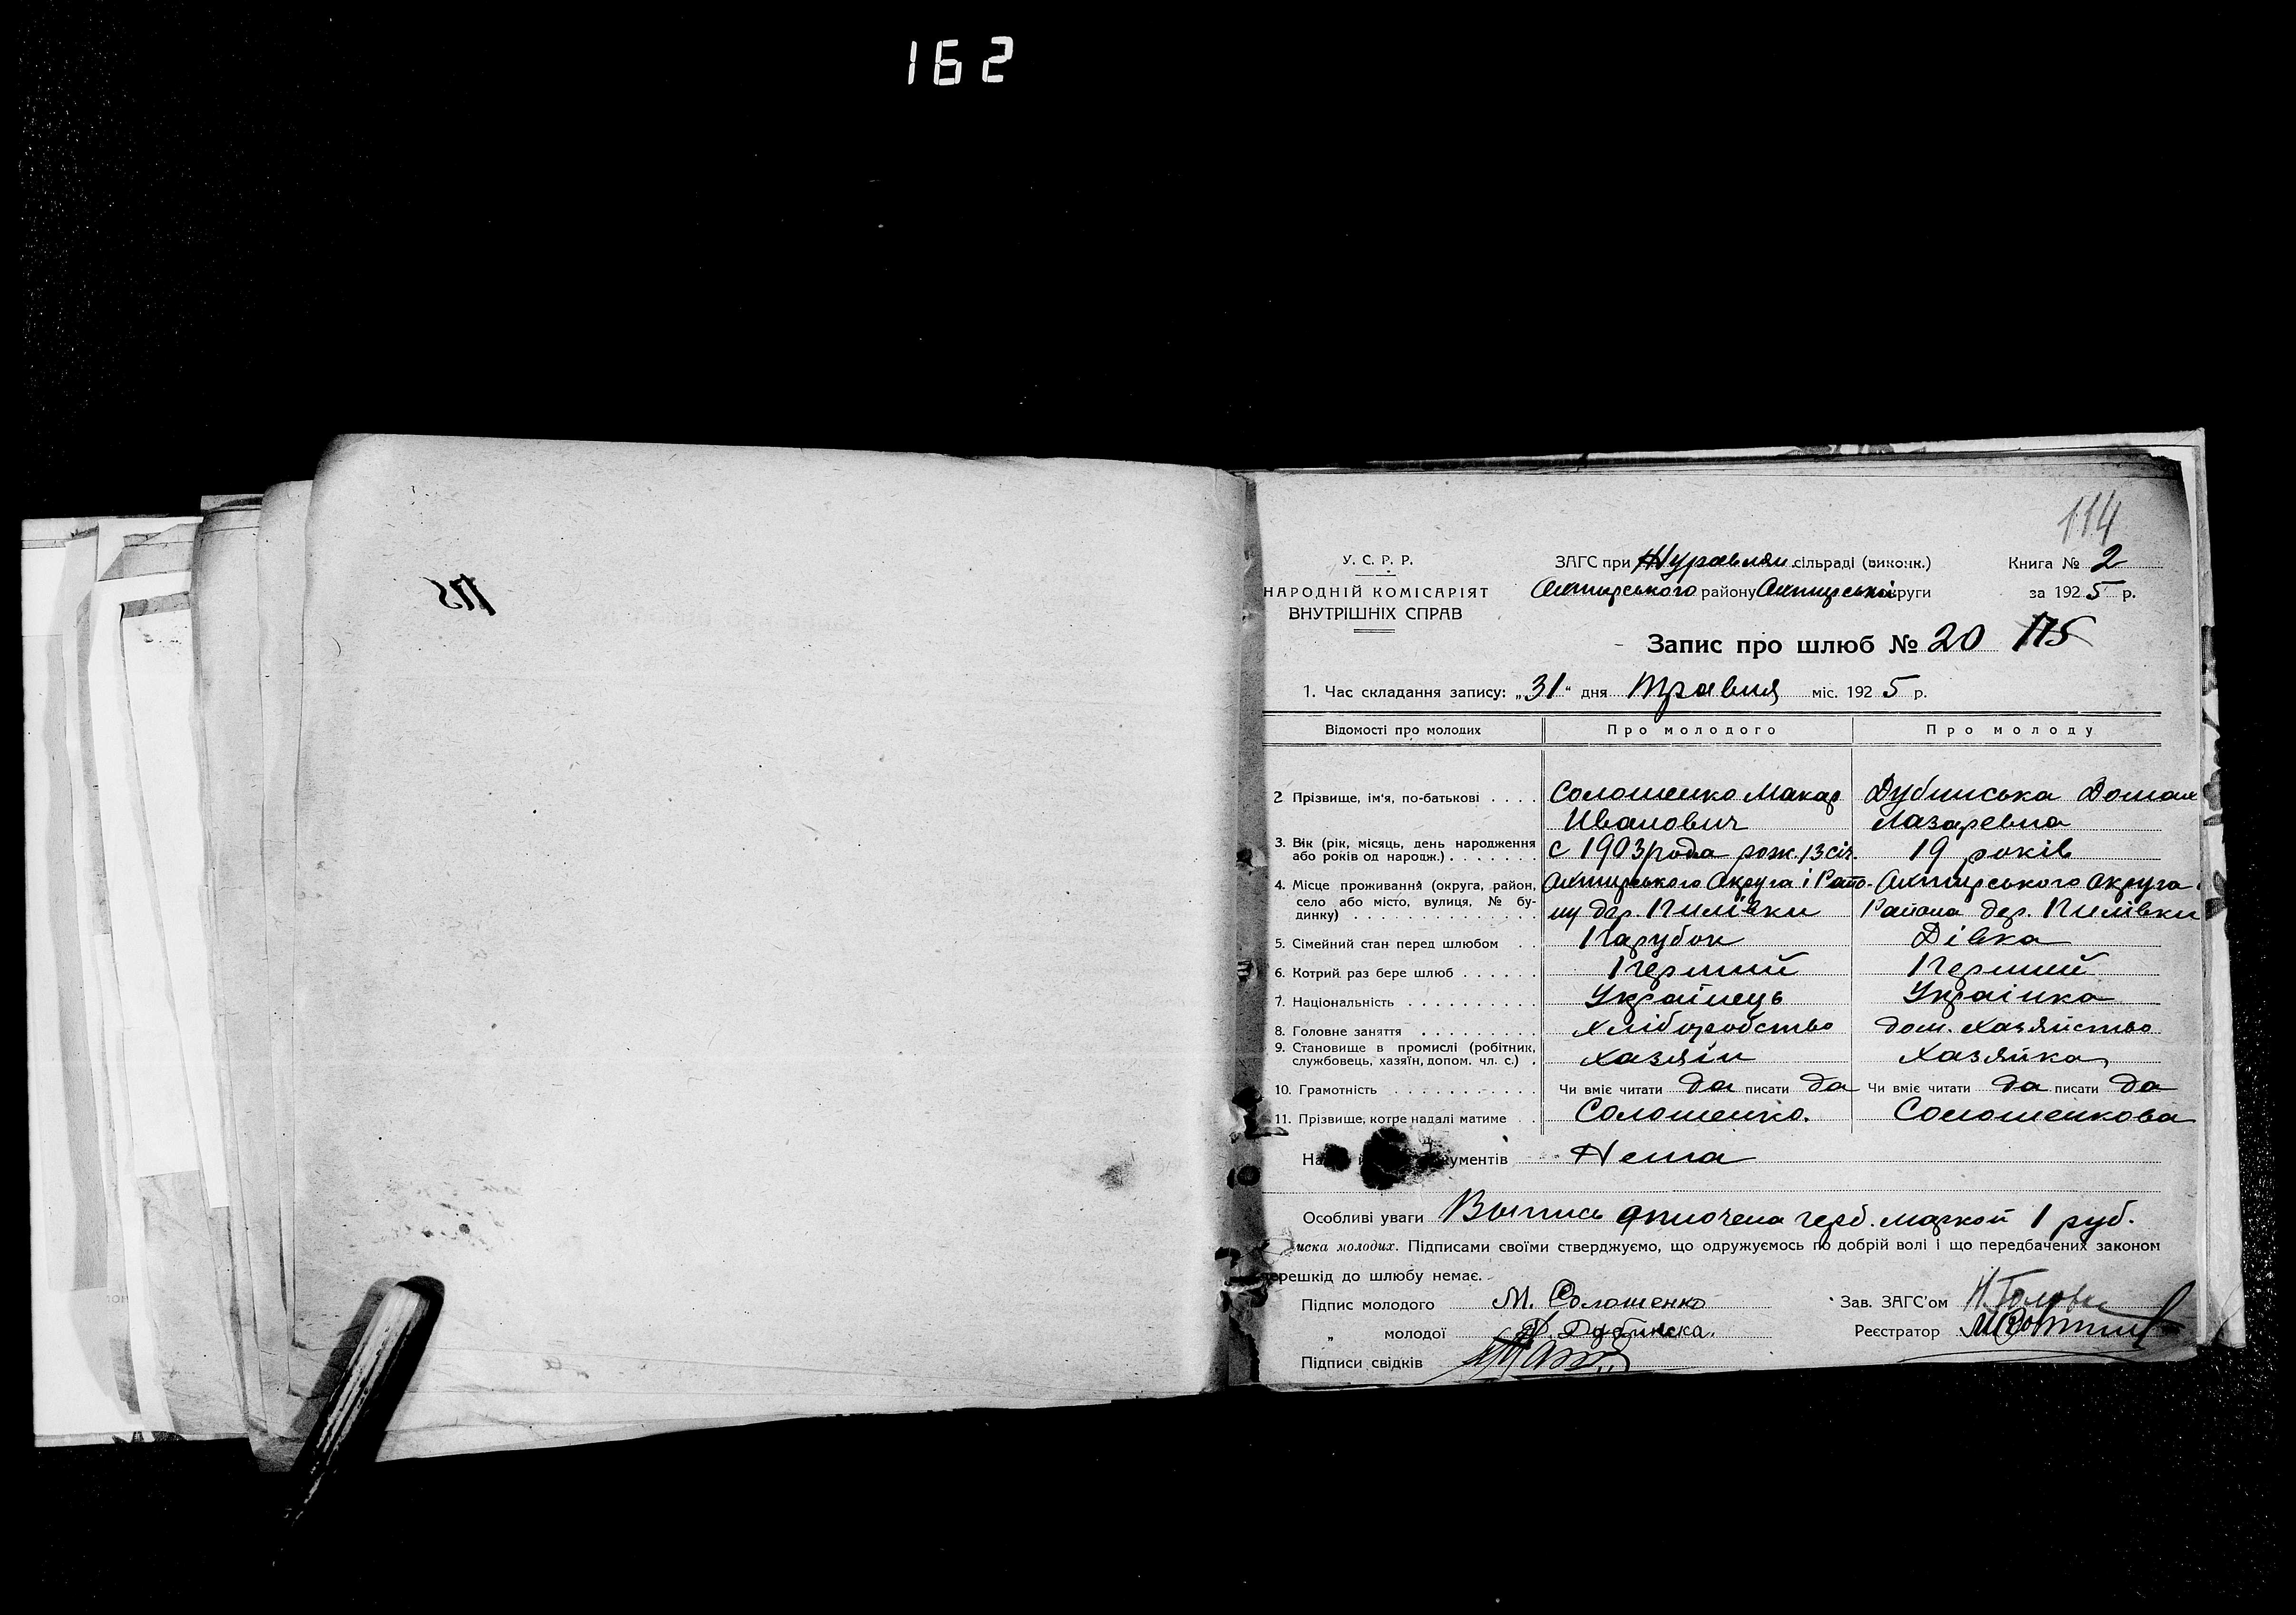 162
175
114
У. С. Р. Р.
НАРОДНІЙ КОМІСАРІЯТ
ВНУТРІШНІХ СПРАВ
ЗАГС при Журавлян. сільраді (виконк.)
Ахтирського району Ахтирської округи
Книга № 2
за 1925 р.
Запис про шлюб № 20 175
1. Час складання запису: „31“ дня Травня міс. 1925 р.
Відомості про молодих Про молодого Про молоду
2 Прізвище, ім'я, по-батькові . . . . Солошенко Макар Дубинська Домах
Иванович Лазаревна
3. Вік (рік, місяць, день народження
або років од народж.) . . . . . . . с 1903 рода рож. 13 січ. 19 років
4. Місце проживання (округа, район, Ахтирського Округа і Райо- Ахтирського Округа
село або місто, вулиця, № бу-
динку) . . . . . . . . . . . . . . ну дер. Пилівки Района дер. Пилівки
5. Сімейний стан перед шлюбом . . Парубок Дівка
6. Котрий раз бере шлюб . . . . . . Перший Перший
7. Національність . . . . . . . . . . Українець Українка
8. Головне заняття . . . . . . . . . Хліборобство дом. хазяйство
9. Становище в промислі (робітник,
службовець, хазяїн, допом. чл. с.) . хазяін Хазяйка
10. Грамотність . . . . . . . . . . . Чи вміє читати да писати да Чи вміє читати да писати да
11. Прізвище, котре надалі матиме . . Солошенко. Солошенкова
На ументів Нема
Особливі уваги Выпись оплочена герб. маркой 1 руб.
иска молодих. Підписами своїми стверджуємо, що одружуємось по добрій волі і що передбачених законом
ерешкід до шлюбу немає.
Підпис молодого М. Солошенко Зав. ЗАГС'ом
„ молодої Д. Дубинска. Реєстратор
Підписи свідків